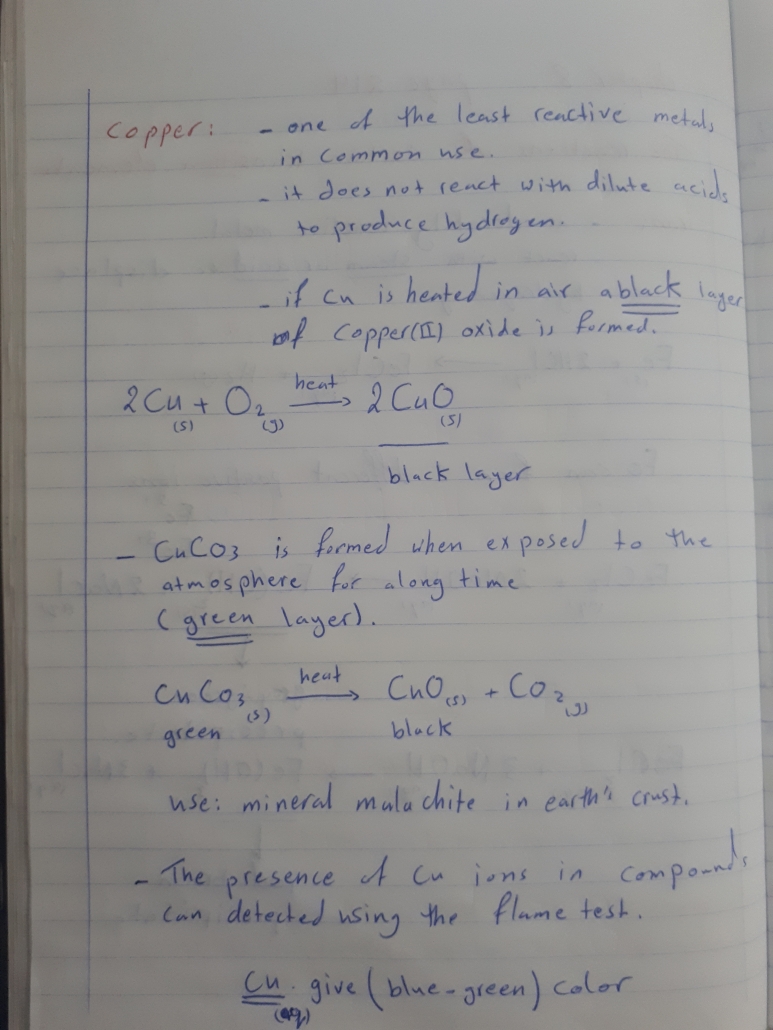 Copper: - one of the least reactive metals
in common use.
- it does not react with dilute acids
to produce hydrogen.
- if Cu is heated in air a black layer
of Copper(II) oxide is formed.
2Cu(s) + O2(g) heat → 2CuO(s)
black layer
- CuCO3 is formed when exposed to the
atmosphere for along time
(green layer).
CuCO3(s) heat → CuO(s) + CO2(g)
green black
use: mineral malachite in earth's crust.
- The presence of Cu ions in compounds
can detected using the flame test.
Cu(aq) give (blue-green) color